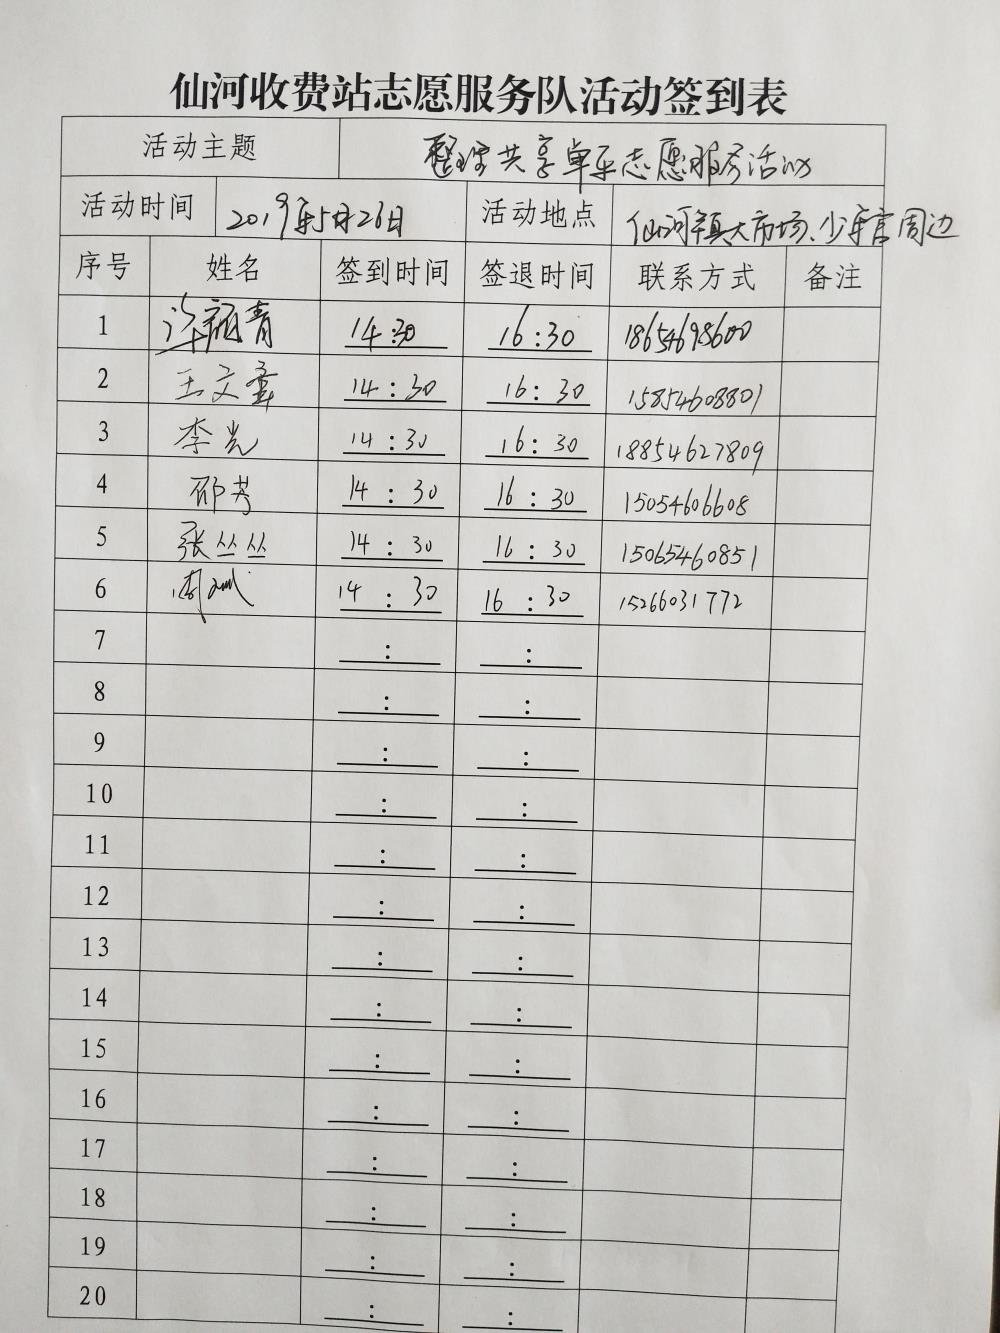 仙河收费站志愿服务队活动签到表
活动主题 整理共享单车志愿服务活动
活动时间 2019年5月26日 活动地点 仙河镇大市场、少年宫周边
序号 姓名 签到时间 签退时间 联系方式 备注
1 丽青 14:30 16:30 18654698600
2 王文章 14:30 16:30 15854608801
3 李光 14:30 16:30 18854627809
4 邵芳 14:30 16:30 15054606608
5 张丛丛 14:30 16:30 15065460851
6 14:30 16:30 15266031772
7 : :
8 : :
9 : :
10 : :
11 : :
12 : :
13 : :
14 : :
15 : :
16 : :
17 : :
18 : :
19 : :
20 : :